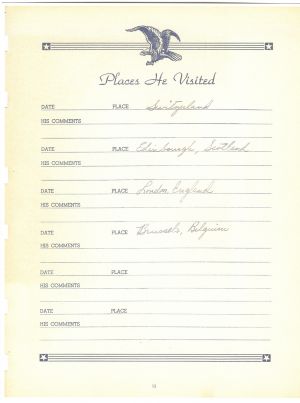 Places He Visited
DATE PLACE Switzerland
HIS COMMENTS
DATE PLACE Edinbourgh, Scotland
HIS COMMENTS
DATE PLACE London, England
HIS COMMENTS
DATE PLACE Brussels, Belgium
HIS COMMENTS
DATE PLACE
HIS COMMENTS
DATE PLACE
HIS COMMENTS